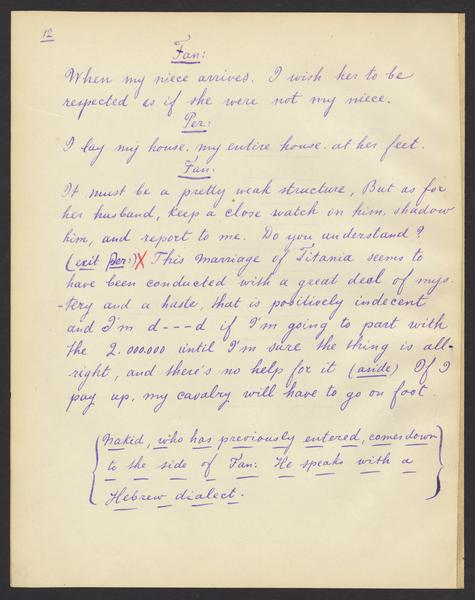 12
Fan:
When my niece arrives. I wish her to be
respected as if she were not my niece.
Per:
I lay my house. my entire house. at her feet.
Fan:
It must be a pretty weak structure, But as for
her husband, keep a close watch on him, shadow
him, and report to me. Do you understand?
(exit Per:)X This marriage of Titania seems to
have been conducted with a great deal of mys-
-tery and a haste, that is positively indecent
and I'm d---d if I'm going to part with
the 2.000.000 until I'm sure the thing is all-
right, and there's no help for it (aside) If I
pay up, my cavalry will have to go on foot.
{Nakid, who has previously entered, comes down
to the side of Fan: He speaks with a
Hebrew dialect.}